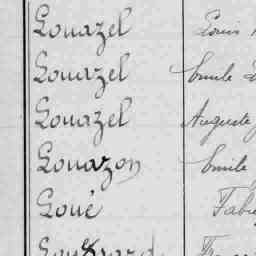 Gouazel Louis
Gouazel Emile
Gouazel Auguste
Gouazon Emile
Goué